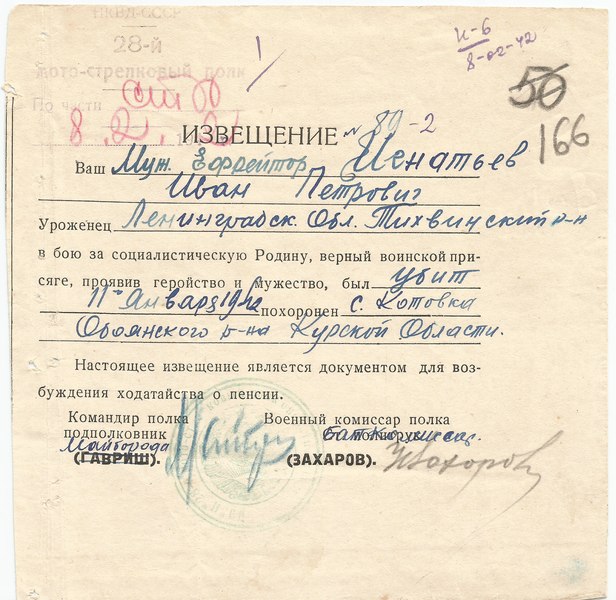 НКВД-СССР
28-й
мото-стрелковый полк
По части
8. 2.
И-6
8-02-42
1
50
166
ИЗВЕЩЕНИЕ № 89-2
Ваш Муж. Ефрейтор Игнатьев
Иван Петрович
Уроженец Ленинградск. Обл. Тихвинский р-н
в бою за социалистическую Родину, верный воинской при-
сяге, проявив геройство и мужество, был убит
11го Января 1942 похоронен с. Котовка
Обоянского р-на Курской Области.
Настоящее извещение является документом для воз-
буждения ходатайства о пенсии.
Командир полка Военный комиссар полка
подполковник бат. комиссар.
Майборода
(ГАВРИШ). (ЗАХАРОВ). Захаров